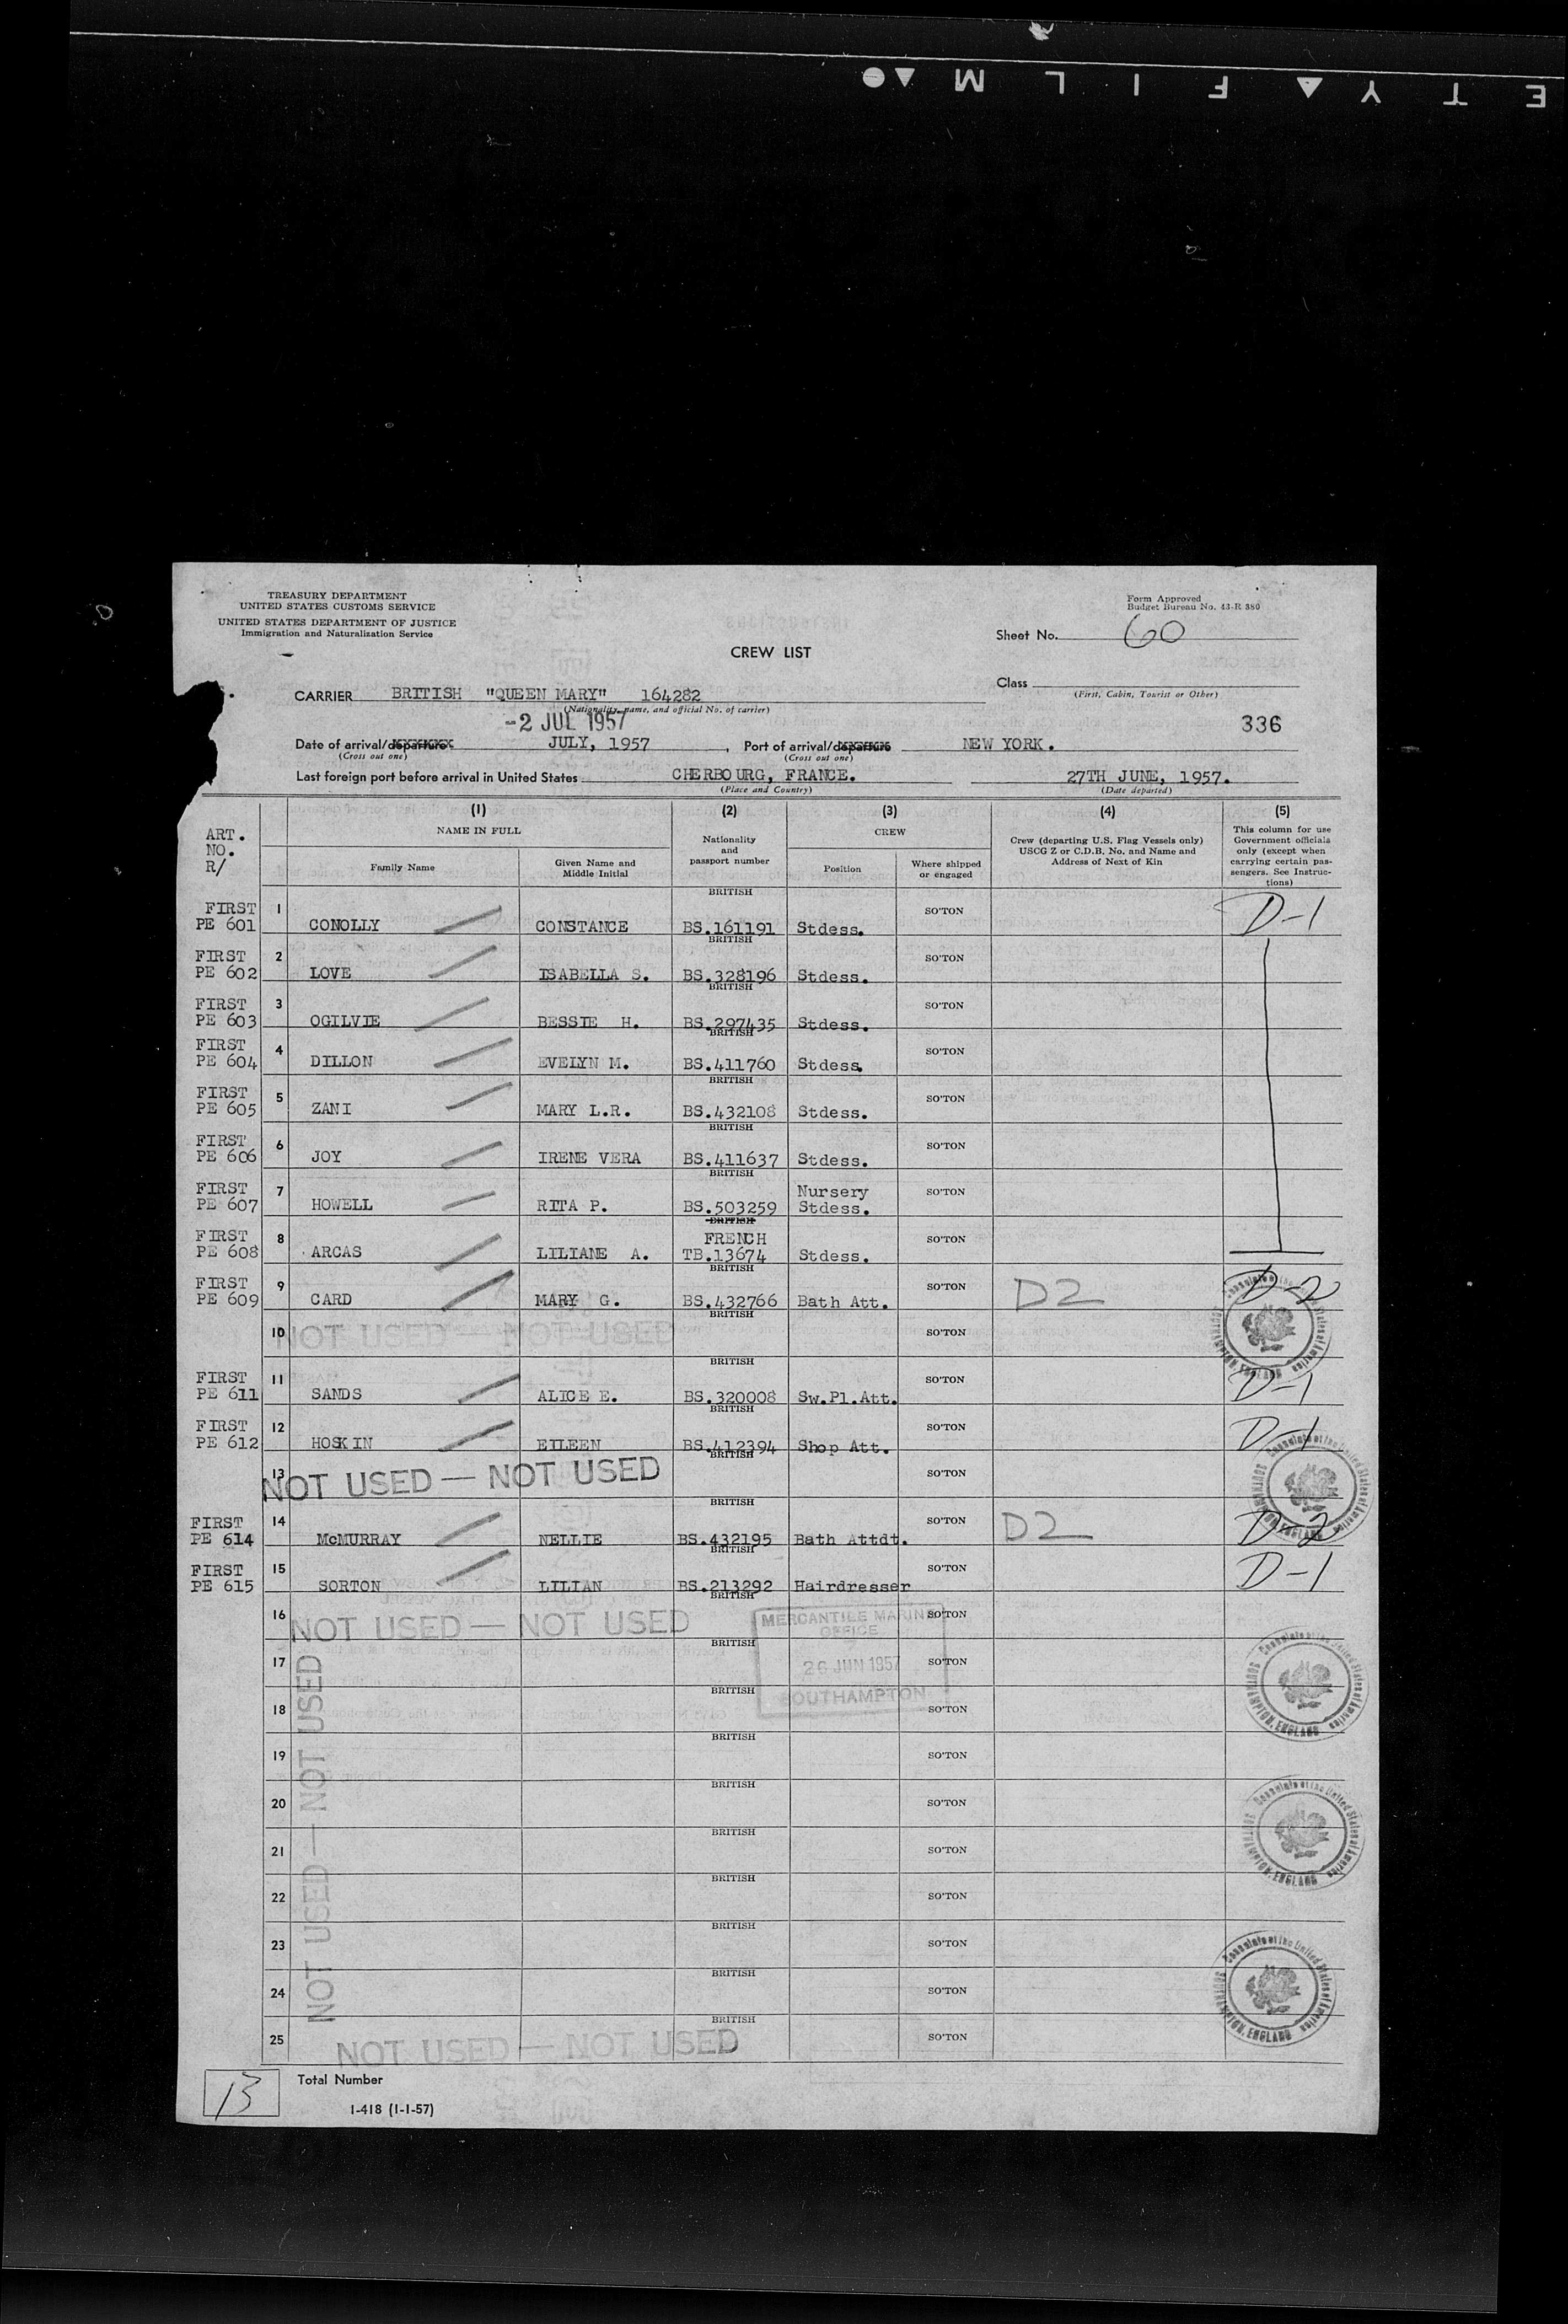 E T Y ▲ F I L M ▲ ●
TREASURY DEPARTMENT
UNITED STATES CUSTOMS SERVICE
UNITED STATES DEPARTMENT OF JUSTICE
Immigration and Naturalization Service
Form Approved
Budget Bureau No. 43-R 380
Sheet No. 60
CREW LIST
Class
(First, Cabin, Tourist or Other)
CARRIER BRITISH "QUEEN MARY" 164282
(Nationality, name, and official No. of carrier)
-2 JUL 1957
336
Date of arrival/departure JULY, 1957, Port of arrival/departure NEW YORK.
(Cross out one) (Cross out one)
Last foreign port before arrival in United States CHERBOURG, FRANCE. 27TH JUNE, 1957.
(Place and Country) (Date departed)
ART. NO. R/
(1) NAME IN FULL
Family Name
Given Name and Middle Initial
(2) Nationality and passport number
(3) CREW
Position
Where shipped or engaged
(4) Crew (departing U.S. Flag Vessels only) USCG Z or C.D.B. No. and Name and Address of Next of Kin
(5) This column for use Government officials only (except when carrying certain passengers. See Instructions)
FIRST PE 601 1 CONOLLY CONSTANCE BRITISH BS.161191 Stdess. SO'TON D-1
FIRST PE 602 2 LOVE ISABELLA S. BRITISH BS.328196 Stdess. SO'TON
FIRST PE 603 3 OGILVIE BESSIE H. BRITISH BS.297435 Stdess. SO'TON
FIRST PE 604 4 DILLON EVELYN M. BRITISH BS.411760 Stdess. SO'TON
FIRST PE 605 5 ZANI MARY L.R. BRITISH BS.432108 Stdess. SO'TON
FIRST PE 606 6 JOY IRENE VERA BRITISH BS.411637 Stdess. SO'TON
FIRST PE 607 7 HOWELL RITA P. BRITISH BS.503259 Nursery Stdess. SO'TON
FIRST PE 608 8 ARCAS LILIANE A. BRITISH FRENCH TB.13674 Stdess. SO'TON
FIRST PE 609 9 CARD MARY G. BRITISH BS.432766 Bath Att. SO'TON D2 D-2
10 NOT USED — NOT USED BRITISH SO'TON
FIRST PE 611 11 SANDS ALICE E. BRITISH BS.320008 Sw.Pl.Att. SO'TON D-1
FIRST PE 612 12 HOSKIN EILEEN BRITISH BS.412394 Shop Att. SO'TON D-1
13 NOT USED — NOT USED BRITISH SO'TON
FIRST PE 614 14 McMURRAY NELLIE BRITISH BS.432195 Bath Attdt. SO'TON D2 D-2
FIRST PE 615 15 SORTON LILIAN BRITISH BS.213292 Hairdresser SO'TON D-1
16 NOT USED — NOT USED BRITISH SO'TON
17 BRITISH SO'TON
18 BRITISH SO'TON
19 BRITISH SO'TON
20 BRITISH SO'TON
21 BRITISH SO'TON
22 BRITISH SO'TON
23 BRITISH SO'TON
24 BRITISH SO'TON
25 NOT USED — NOT USED BRITISH SO'TON
NOT USED — NOT USED — NOT USED
MERCANTILE MARINE
OFFICE
26 JUN 1957
SOUTHAMPTON
Consulate of the United States of America SOUTHAMPTON, ENGLAND
Consulate of the United States of America SOUTHAMPTON, ENGLAND
Consulate of the United States of America SOUTHAMPTON, ENGLAND
Consulate of the United States of America SOUTHAMPTON, ENGLAND
Consulate of the United States of America SOUTHAMPTON, ENGLAND
13 Total Number
I-418 (1-1-57)